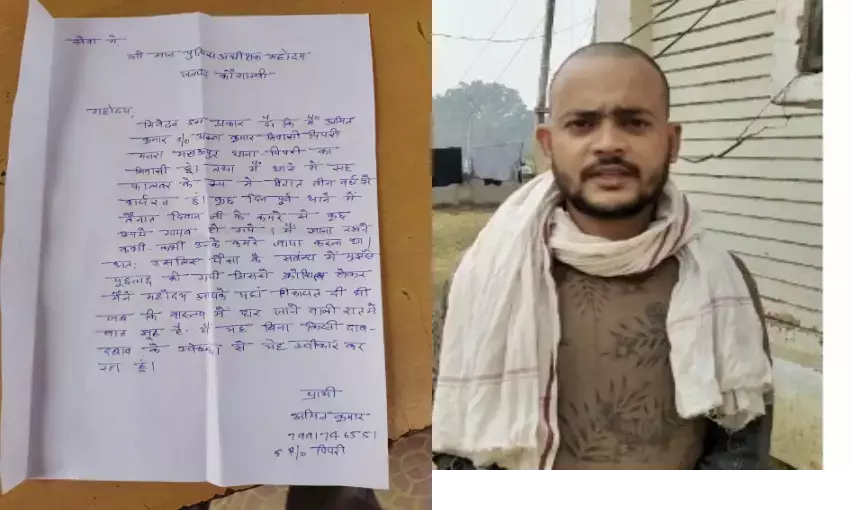 सेवा में
श्री मान पुलिस अधीक्षक महोदय
जनपद कौशाम्बी
महोदय,
निवेदन इस प्रकार है कि मैं अमित
कुमार s/o कुमार निवासी पिपरी
थाना पिपरी का
निवासी हूं। तथा मैं थाने में सह
के रूप में विगत तीन वर्ष से
कार्यरत हूं। कुछ दिन पूर्व थाने में
तैनात दिवान जी के कमरे से कुछ
रूपये गायब हो गये। मैं खाना रखने
कभी-कभी उनके कमरे जाया करता था।
अतः इसलिए पैसा के सम्बन्ध में मुझसे
पूछताछ की गयी जिससे क्रोधित होकर
मैंने महोदय आपके यहां शिकायत दी थी
जब कि वास्तव में मार जाने वाली
बात झूठ है. मैं यह बिना किसी दाव-
दबाव के स्वेच्छा से यह स्वीकार कर
रहा हूं।
प्रार्थी
अमित कुमार
पिपरी